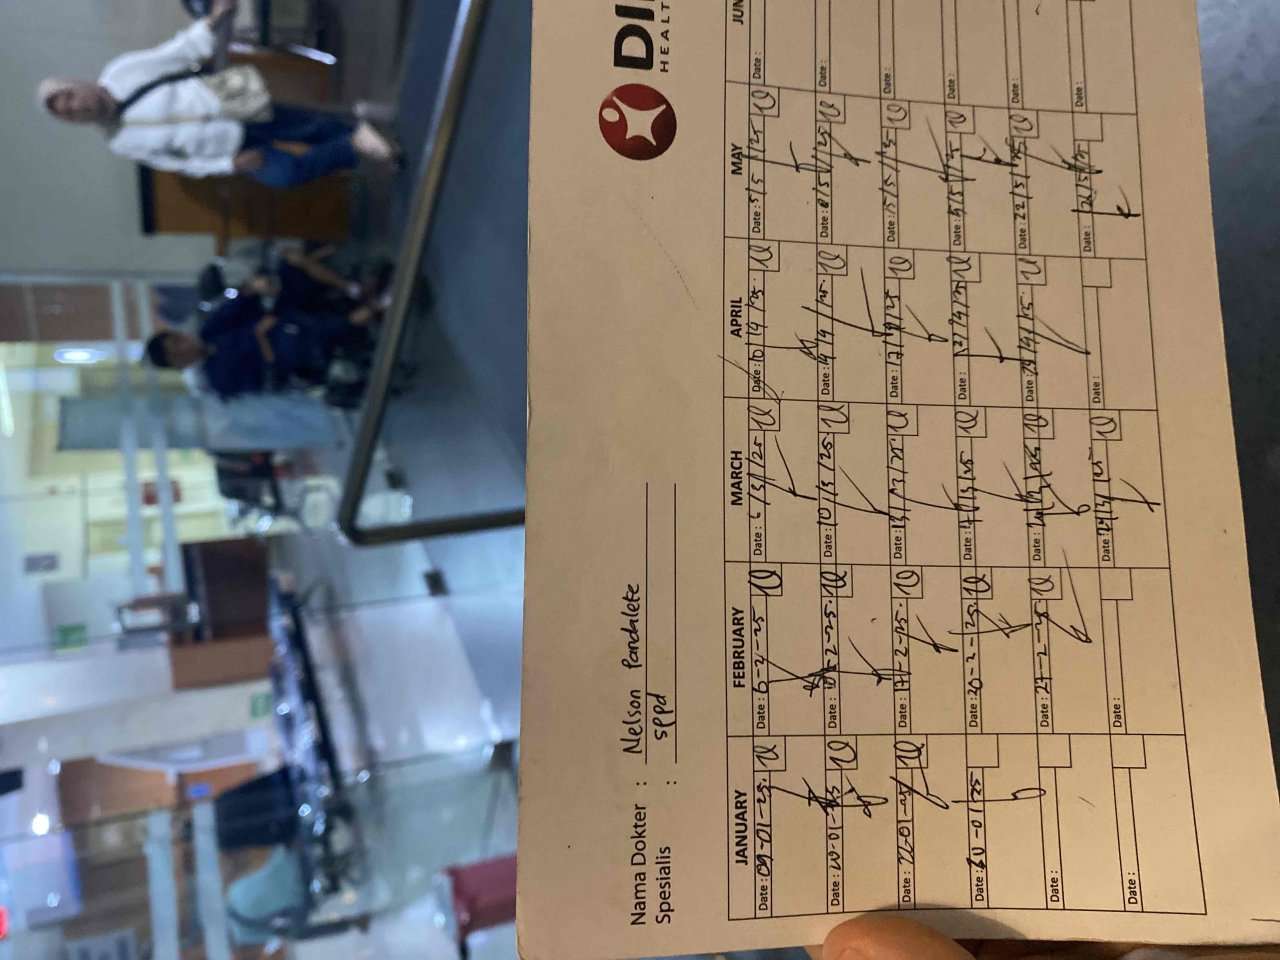 DI
HEALT
Nama Dokter : Nelson Pandalete
Spesialis : sppd
JANUARY FEBRUARY MARCH APRIL MAY JUN
Date: 09-01-25. Date: 6-2-25 Date: 6/3/25 Date: 10/4/25. Date: 5/5/25 Date:
Date: 20-01-25 Date: 10-2-25. Date: 10/3/25. Date: 14/4/25. Date: 8/5/25 Date:
Date: 22-01-25 Date: 17-2-25. Date: 13/3/25. Date: 17/4/25 Date: 15/5/25 Date:
Date: 30-01-25 Date: 20-2-25. Date: 17/3/25. Date: /4/25 Date: /5/25 Date:
Date: Date: 27-2-25 Date: /3/25 Date: /4/25. Date: 22/5/25 Date:
Date: Date: Date: /3/25 Date: Date: /5/25 Date: